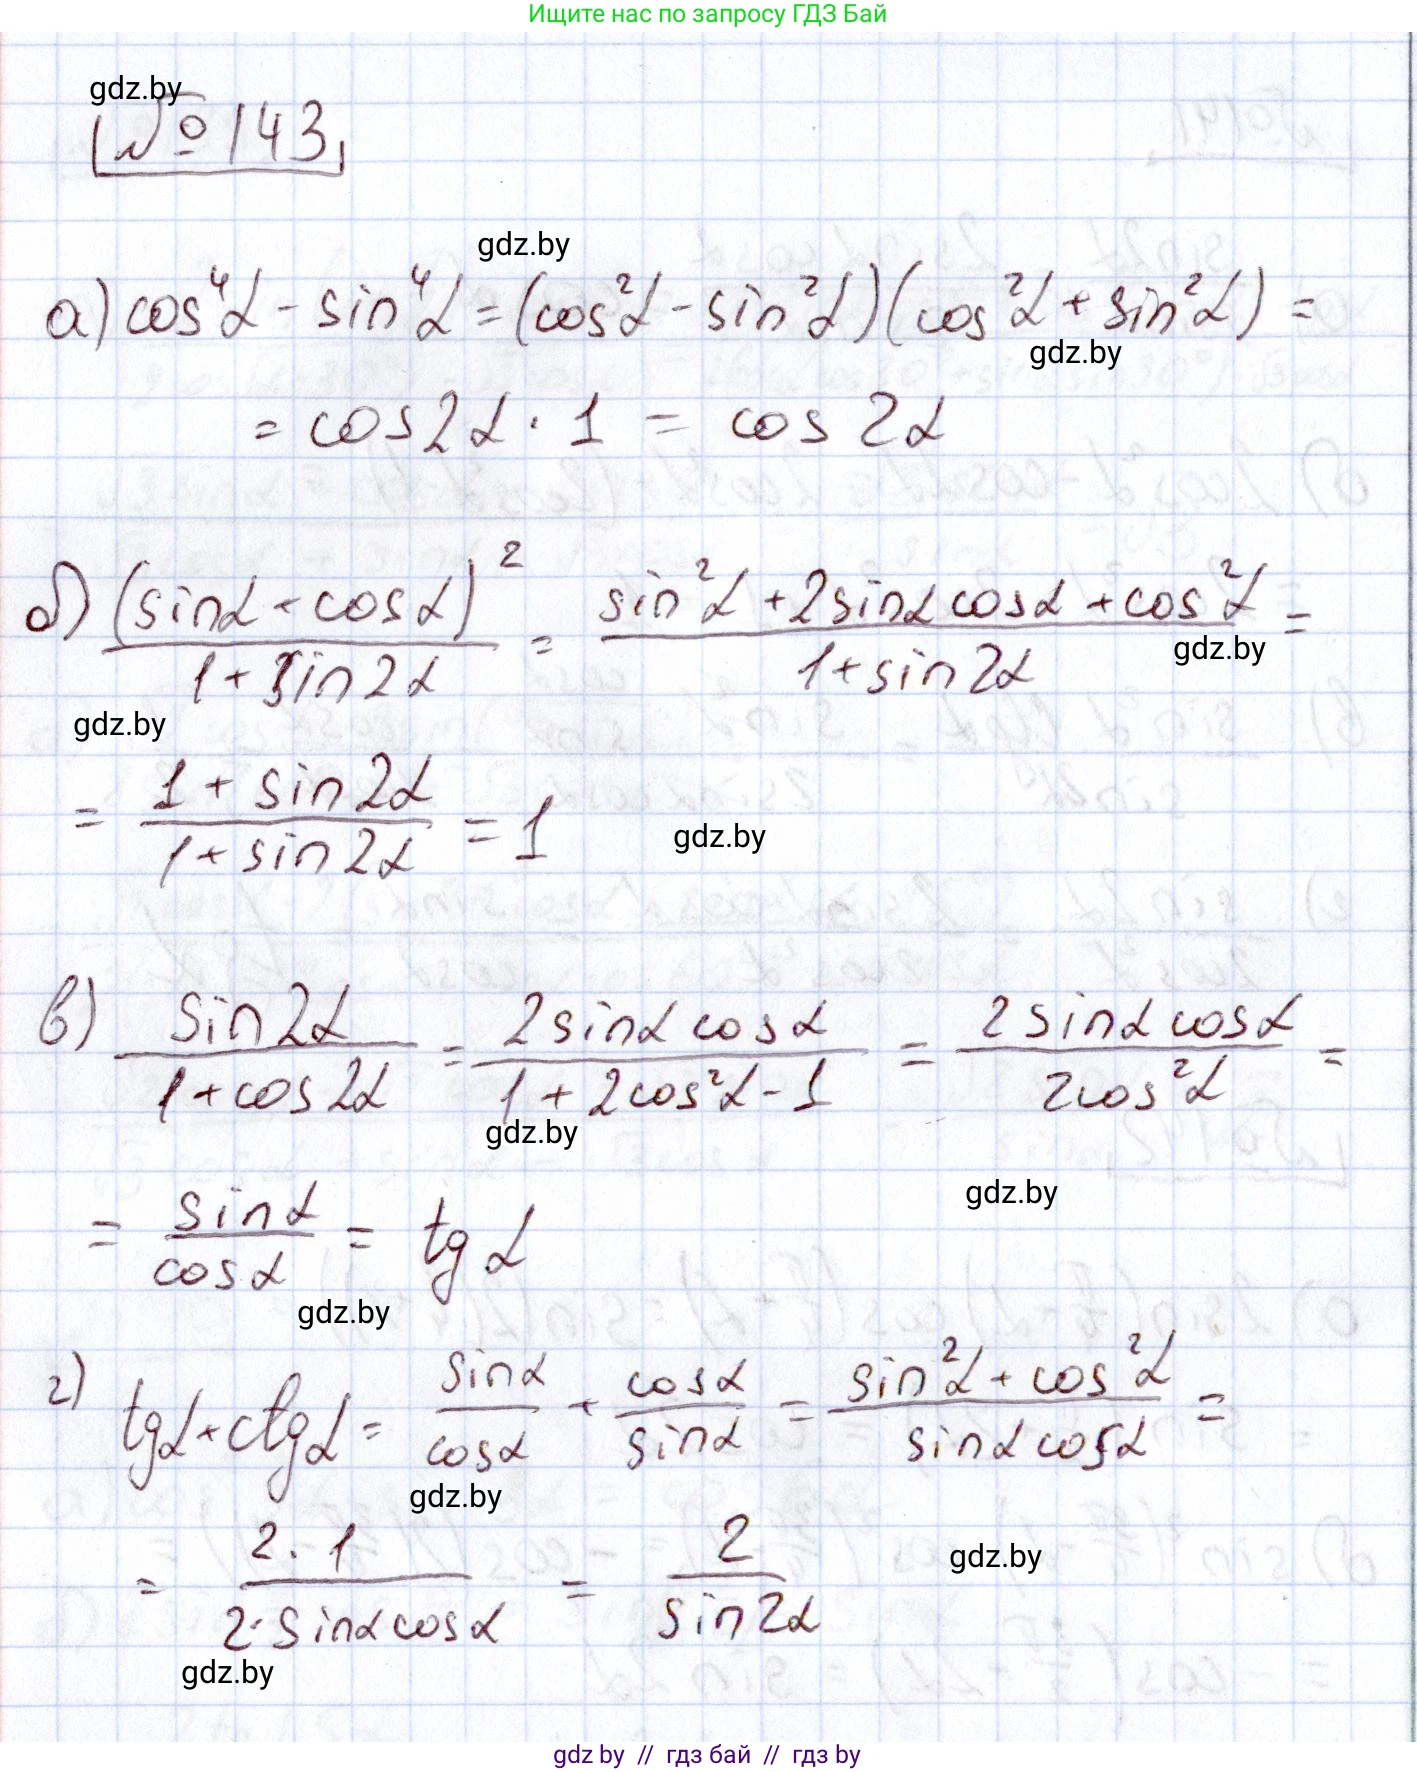 Ищите нас по запросу ГДЗ Бай
gdz.by
№143
gdz.by
а) cos⁴α - sin⁴α = (cos²α - sin²α)(cos²α + sin²α) =
gdz.by
= cos2α · 1 = cos 2α
б) (sinα + cosα)² / 1 + sin2α = sin²α + 2sinα cosα + cos²α / 1 + sin2α =
gdz.by
gdz.by
= 1 + sin2α / 1 + sin2α = 1
gdz.by
в) sin2α / 1 + cos2α = 2sinα cosα / 1 + 2cos²α - 1 = 2sinα cosα / 2cos²α =
gdz.by
gdz.by
= sinα / cosα = tgα
gdz.by
г) tgα + ctgα = sinα / cosα + cosα / sinα = sin²α + cos²α / sinα cosα =
gdz.by
gdz.by
= 2·1 / 2·sinα cosα = 2 / sin2α
gdz.by
gdz by // гдз бай // гдз by